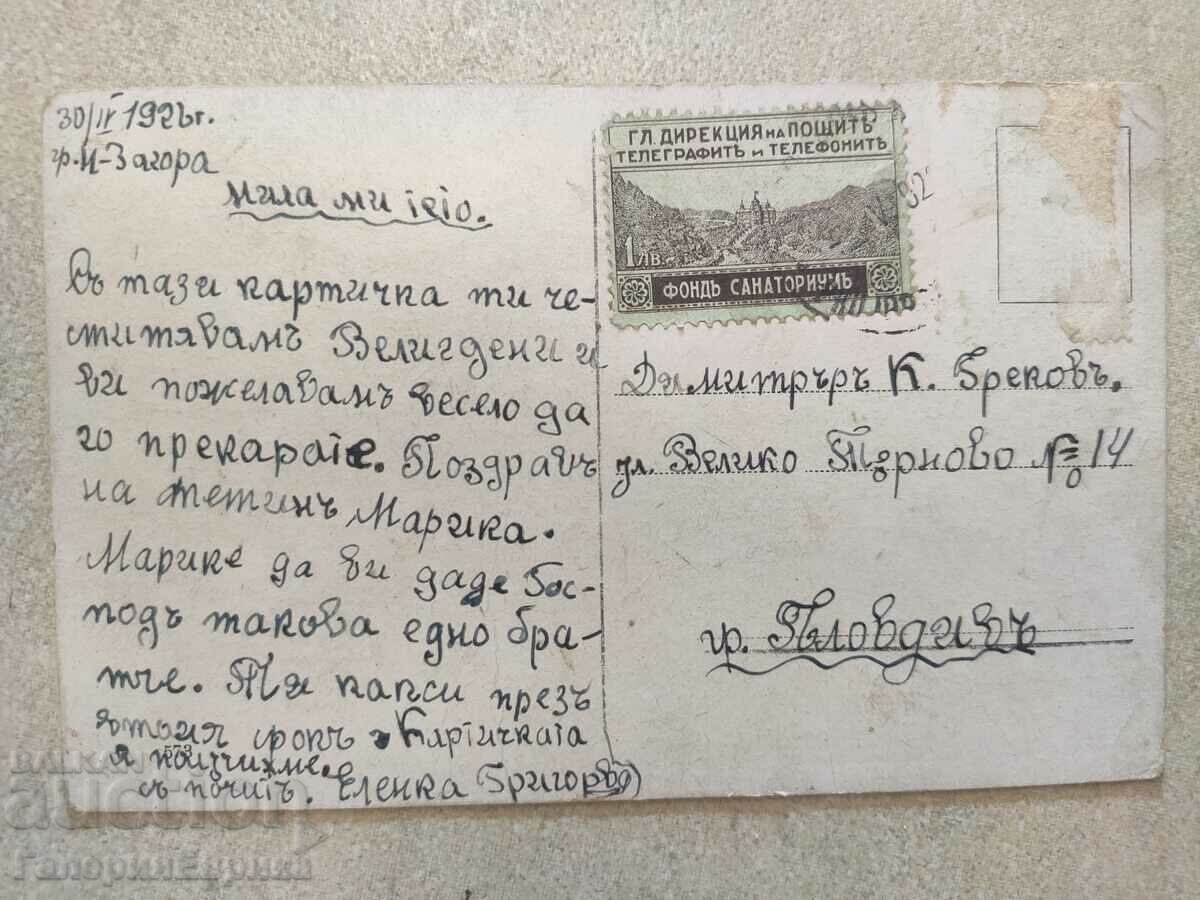 30/IV 1926 г.
гр. Н-Загора
Мила ми
Съ тази картичка ти че-
ститявамъ Велигдени и
ви пожелавамъ весело да
го прекараie. Поздравъ
на тетинъ Марика.
Марике да ви даде Гос-
подъ такова едно бра-
тче. Тя капси презъ
Картичката
съ почитъ. Еленка Григорова
ГЛ. ДИРЕКЦИЯ НА ПОЩИТѢ
ТЕЛЕГРАФИТѢ И ТЕЛЕФОНИТѢ
1 ЛВ.
ФОНДЪ САНАТОРИУМЪ
Димитръръ К. Грековъ.
ул. Велико Търново № 14
гр. Пловдивъ
573
БАЛКАН
auction
ГалерияЕврика